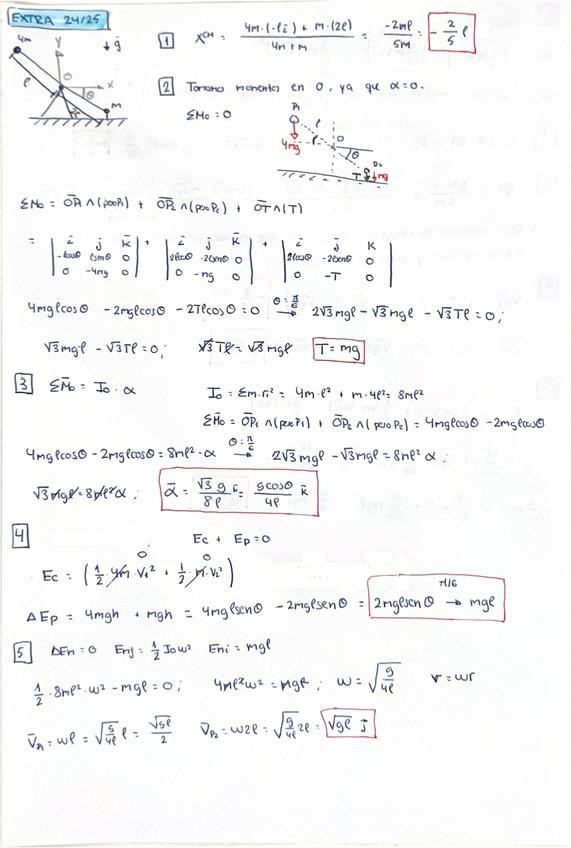 EXTRA 24/25
4m
Y
↓ḡ
ℓ
O
x
θ
m
1 X^CM = 4m·(-ℓī) + m·(2ℓ) / 4m+m = -2mℓ / 5m = -2/5 ℓ
2 Tomamos momentos en O, ya que α=0.
ΣM₀ = 0
P₁
ℓ
O
θ
4mg
P₂
T
mg
ΣM₀ = OP₁ ∧ (peso P₁) + OP₂ ∧ (peso P₂) + OT ∧ (T)
= | ī j k̄ ; -ℓcosθ ℓsenθ 0 ; 0 -4mg 0 | + | ī j k̄ ; 2ℓcosθ -2ℓsenθ 0 ; 0 -mg 0 | + | ī j k ; 2ℓcosθ -2ℓsenθ 0 ; 0 -T 0 |
4mgℓcosθ - 2mgℓcosθ - 2Tℓcosθ = 0 →(θ=π/6) 2√3mgℓ - √3mgℓ - √3Tℓ = 0;
√3mgℓ - √3Tℓ = 0; √3Tℓ = √3mgℓ T = mg
3 ΣM̄₀ = I₀·α I₀ = Σm·r² = 4m·ℓ² + m·4ℓ² = 8mℓ²
ΣM̄₀ = OP₁ ∧ (peso P₁) + OP₂ ∧ (peso P₂) = 4mgℓcosθ - 2mgℓcosθ
4mgℓcosθ - 2mgℓcosθ = 8mℓ²·α →(θ=π/6) 2√3mgℓ - √3mgℓ = 8mℓ²α;
√3mgℓ = 8mℓ²α; ᾱ = √3 g / 8ℓ k̄ = gcosθ / 4ℓ k̄
4 Ec + Ep = 0
Ec = (1/2·4m·V₁² + 1/2·m·V₂²)
0 0
π/6
ΔEp = 4mgh + mgh = 4mgℓsenθ - 2mgℓsenθ = 2mgℓsenθ → mgℓ
5 ΔEm = 0 Emf = 1/2 I₀ω² Emi = mgℓ
1/2·8mℓ²·ω² - mgℓ = 0; 4mℓ²ω² = mgℓ; ω = √(g/4ℓ) v = ωr
V̄P₁ = ωℓ = √(g/4ℓ) ℓ = √gℓ / 2 V̄P₂ = ω2ℓ = √(g/4ℓ) 2ℓ = √gℓ j̄